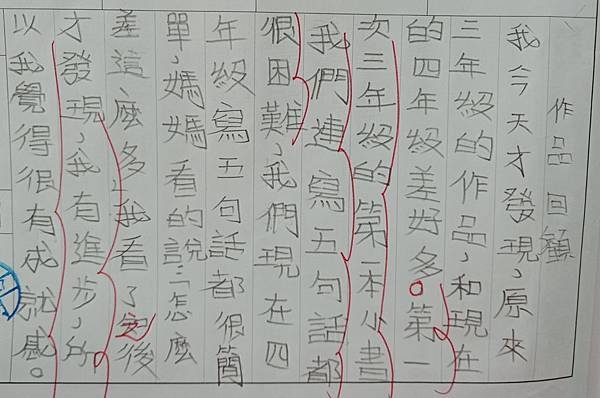 作品回顧
我今天才發現,原來
三年級的作品,和現在
的四年級差好多。第一
次三年級的第一本小書
我們連寫五句話都
很困難,我們現在四
年級寫五句話都很簡
單,媽媽看的說:怎麼
差這麼多,我看了後
才發現,我有進步,所
以我覺得很有成就感。